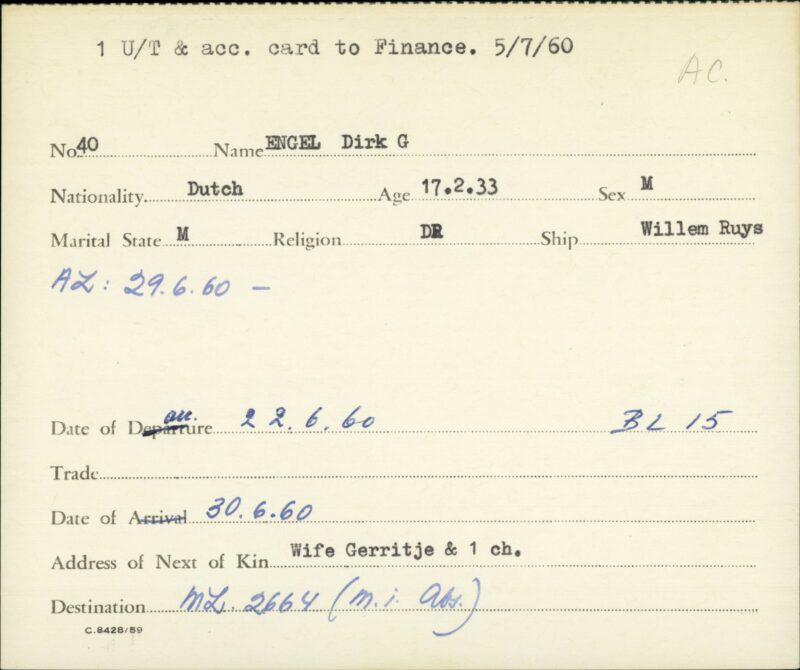 1 U/T & acc. card to Finance. 5/7/60
AC.
No. 40 Name ENGEL Dirk G
Nationality Dutch Age 17.2.33 Sex M
Marital State M Religion DR Ship Willem Ruys
AL: 29.6.60 -
arr.
Date of Departure 22.6.60 BL 15
Trade
Date of Arrival 30.6.60
Address of Next of Kin Wife Gerritje & 1 ch.
Destination ML. 2664 (m.i. Abs.)
C.8428/59